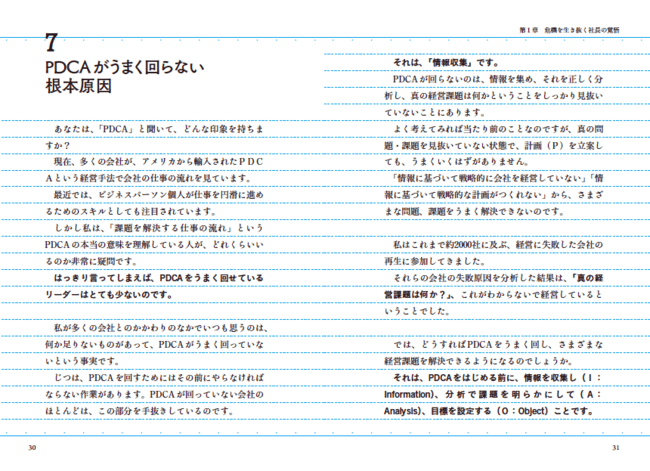 第1章 危機を生き抜く社長の覚悟
7
PDCAがうまく回らない
根本原因
あなたは、「PDCA」と聞いて、どんな印象を持ちま
すか？
現在、多くの会社が、アメリカから輸入されたＰＤＣ
Ａという経営手法で会社の仕事の流れを見ています。
最近では、ビジネスパーソン個人が仕事を円滑に進め
るためのスキルとしても注目されています。
しかし私は、「課題を解決する仕事の流れ」という
PDCAの本当の意味を理解している人が、どれくらいい
るのか非常に疑問です。
はっきり言ってしまえば、PDCAをうまく回せている
リーダーはとても少ないのです。
私が多くの会社とのかかわりのなかでいつも思うのは、
何か足りないものがあって、PDCAがうまく回っていな
いという事実です。
じつは、PDCAを回すためにはその前にやらなければ
ならない作業があります。PDCAが回っていない会社の
ほとんどは、この部分を手抜きしているのです。
30
それは、「情報収集」です。
PDCAが回らないのは、情報を集め、それを正しく分
析し、真の経営課題は何かということをしっかり見抜い
ていないことにあります。
よく考えてみれば当たり前のことなのですが、真の問
題・課題を見抜いていない状態で、計画（Ｐ）を立案し
ても、うまくいくはずがありません。
「情報に基づいて戦略的に会社を経営していない」「情
報に基づいて戦略的な計画がつくれない」から、さまざ
まな問題、課題をうまく解決できないのです。
私はこれまで約2000社に及ぶ、経営に失敗した会社の
再生に参加してきました。
それらの会社の失敗原因を分析した結果は、「真の経
営課題は何か？」、これがわからないで経営していると
いうことでした。
では、どうすればPDCAをうまく回し、さまざまな
経営課題を解決できるようになるのでしょうか。
それは、PDCAをはじめる前に、情報を収集し（Ｉ：
Information）、分析で課題を明らかにして（Ａ：
Analysis）、目標を設定する（Ｏ：Object）ことです。
31